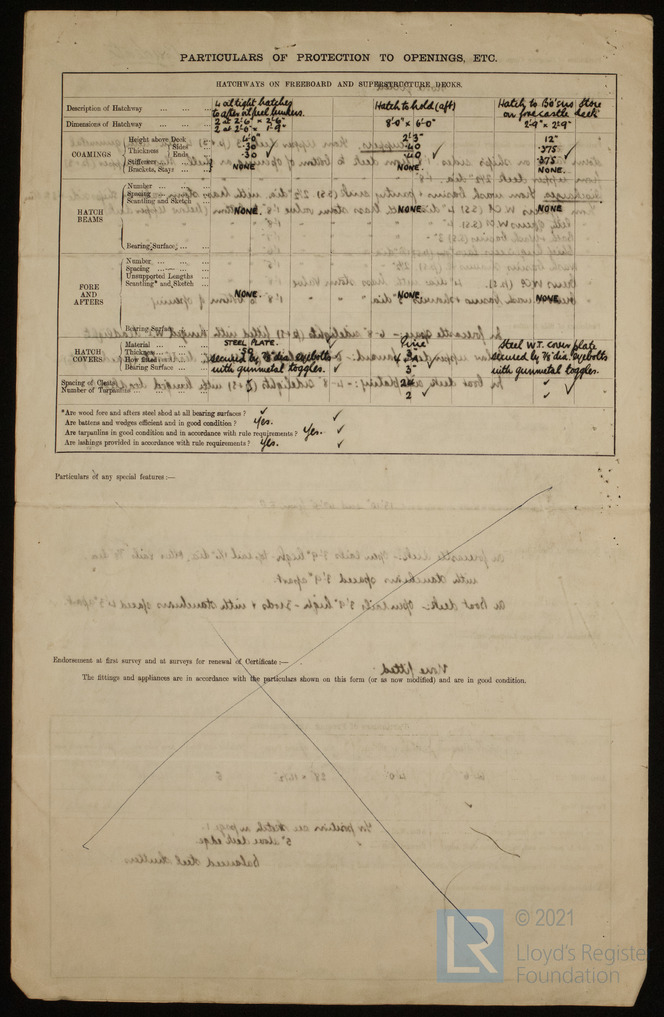 PARTICULARS OF PROTECTION TO OPENINGS, ETC.
HATCHWAYS ON FREEBOARD AND SUPERSTRUCTURE DECKS.
Description of Hatchway ... ... ... 4 oiltight hatches to after oil fuel bunkers. Hatch to hold (aft) Hatch to Bo'suns Store on forecastle deck
Dimensions of Hatchway ... ... ... 2 at 2'-6" × 2'-6" 8'-0" × 6'-0" 2'-9" × 2'-9"
2 at 2'-0" × 1'-9"
COAMINGS
Height above Deck 2'-3" 12"
Thickness Sides .30 .40 .375
Ends .30 .40 .375
Stiffeners
Brackets, Stays NONE NONE. NONE.
HATCH BEAMS
Number
Spacing
Scantling and Sketch NONE. NONE. NONE
Bearing Surface
FORE AND AFTERS
Number
Spacing
Unsupported Lengths
Scantling* and Sketch
NONE. NONE. NONE.
Bearing Surface
HATCH COVERS
Material STEEL PLATE. Pine Steel W.T. cover plate
Thickness .50 3" secured by 7/8" dia. eyebolts
How fitted secured by 7/8" dia. eyebolts with gunmetal toggles.
Bearing Surface with gunmetal toggles. 3"
Spacing of Cleats
Number of Tarpaulins 2
*Are wood fore and afters steel shod at all bearing surfaces?
Are battens and wedges efficient and in good condition? Yes.
Are tarpaulins in good condition and in accordance with rule requirements? Yes.
Are lashings provided in accordance with rule requirements? Yes.
Particulars of any special features:—
Endorsement at first survey and at surveys for renewal of Certificate:—
The fittings and appliances are in accordance with the particulars shown on this form (or as now modified) and are in good condition.
LR
© 2021
Lloyd's Register
Foundation